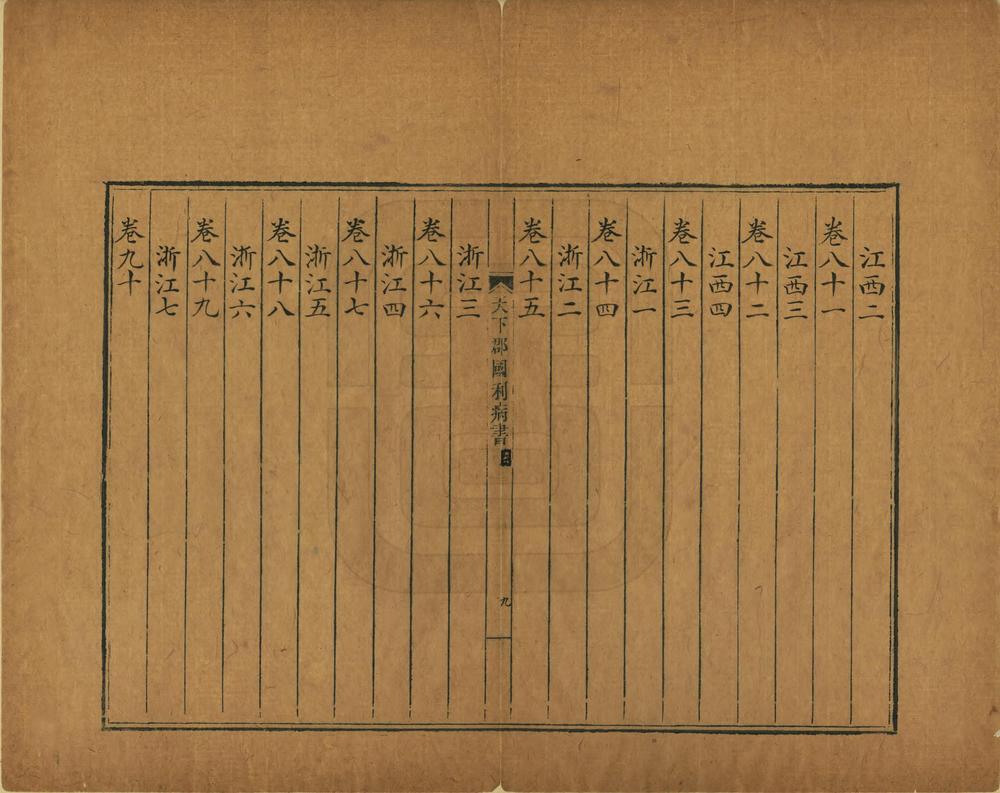 江西二
卷八十一
江西三
卷八十二
江西四
卷八十三
浙江一
卷八十四
浙江二
卷八十五
天下郡國利病書
九
浙江三
卷八十六
浙江四
卷八十七
浙江五
卷八十八
浙江六
卷八十九
浙江七
卷九十